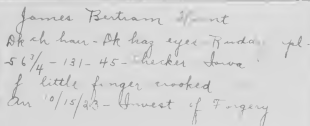 James Bertram
Dk ch hair - Dk haz eyes Rudd pl-
5 6 3/4 - 131 - 45 - hecker Iowa
f little finger crooked
Arr 10/15/23 - Invest of Forgery